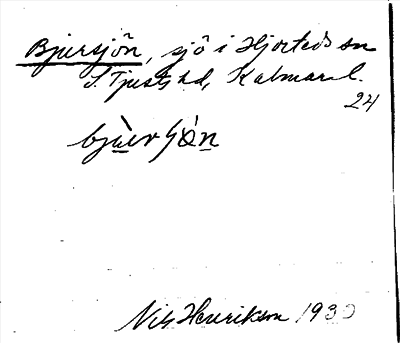 Bjursjön, sjö i Hjorteds sn
S. Tjusts hd, Kalmar l.
24
bjùer ʃö́n
Nils Henrikson 1930